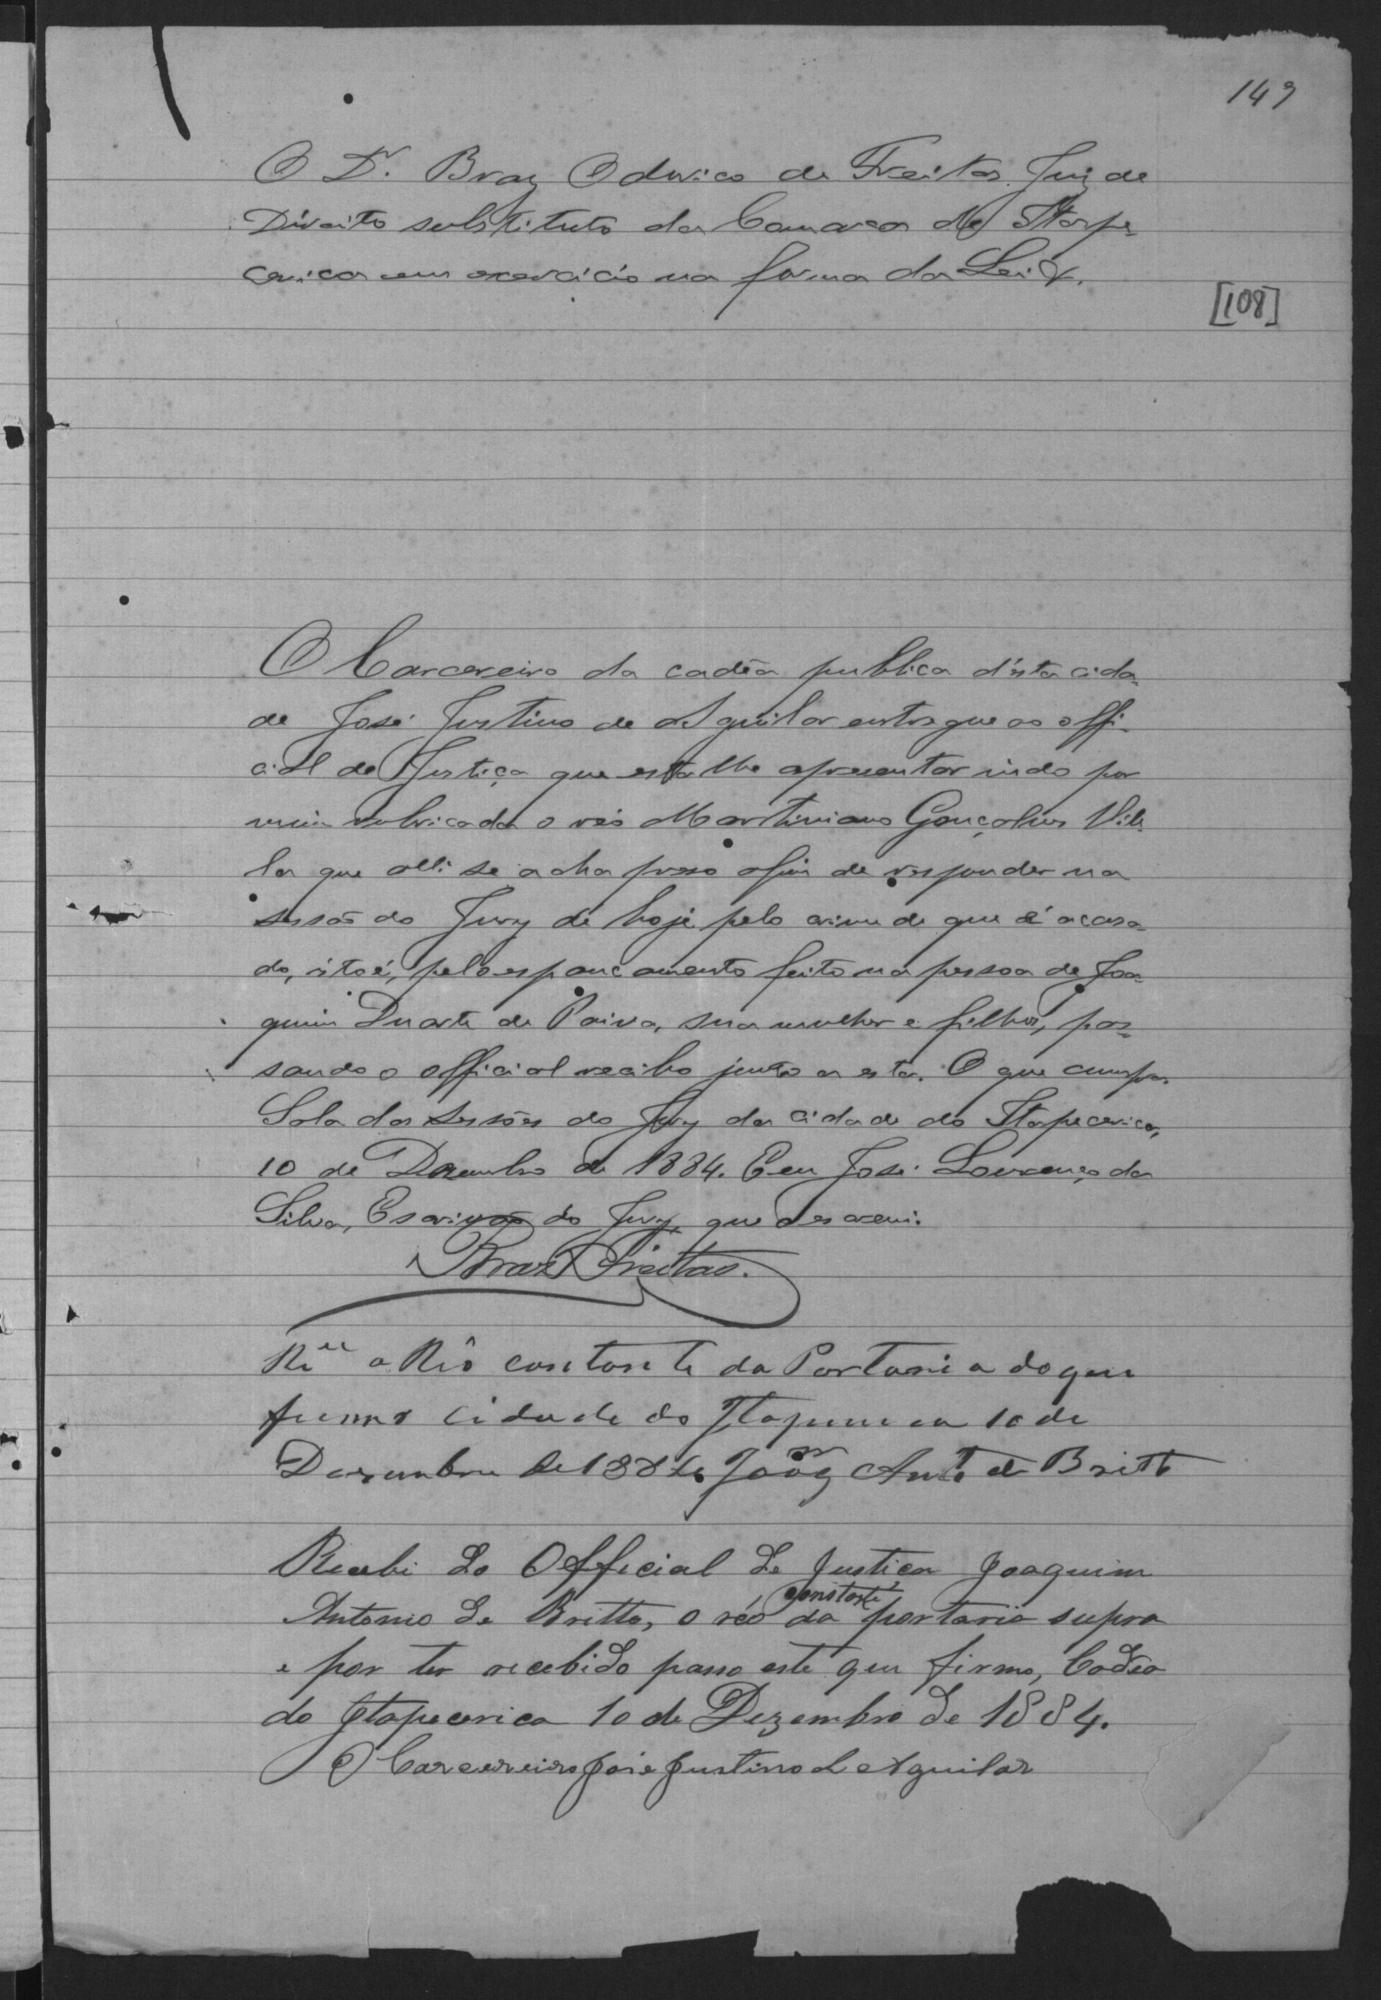 149
O Dr. Braz Odorico de Freitas Juiz de
Direito substituto da Comarca de Itape-
cerica em exercicio na forma da Lei &.
[108]
O Carcereiro da cadêa publica d'esta cida-
de José Justino de Aguilar entregue ao offi-
cial de Justiça que esta lhe apresentar indo por
mim rubricada o réo Martiniano Gonçalves Vil-
la que alli se acha preso afim de responder na
sessão do Jury de hoje pelo crime de que é acusa-
do, isto é, pelo espancamento feito na pessoa de Joa-
quim Duarte de Paiva, sua mulher e filhos, pas-
sando o official recibo junto a esta. O que cumpra.
Sala das sessões do Jury da cidade do Itapecerica,
10 de Dezembro de 1884. Eu José Lourenço da
Silva, Escrivão do Jury, que o escrevi.
Braz Freitas.
a Réo constante da Portaria do que
firmo Cidade do Itapecerica 10 de
Dezembro de 1884 Joaqm Anto de Britto
Recebi do Official de Justiça Joaquim
Antonio de Britto, o réo constante da portaria supra
e por ter recebido passo este que firmo, Cadêa
do Itapecerica 10 de Dezembro de 1884.
O Carcereiro José Justino de Aguilar